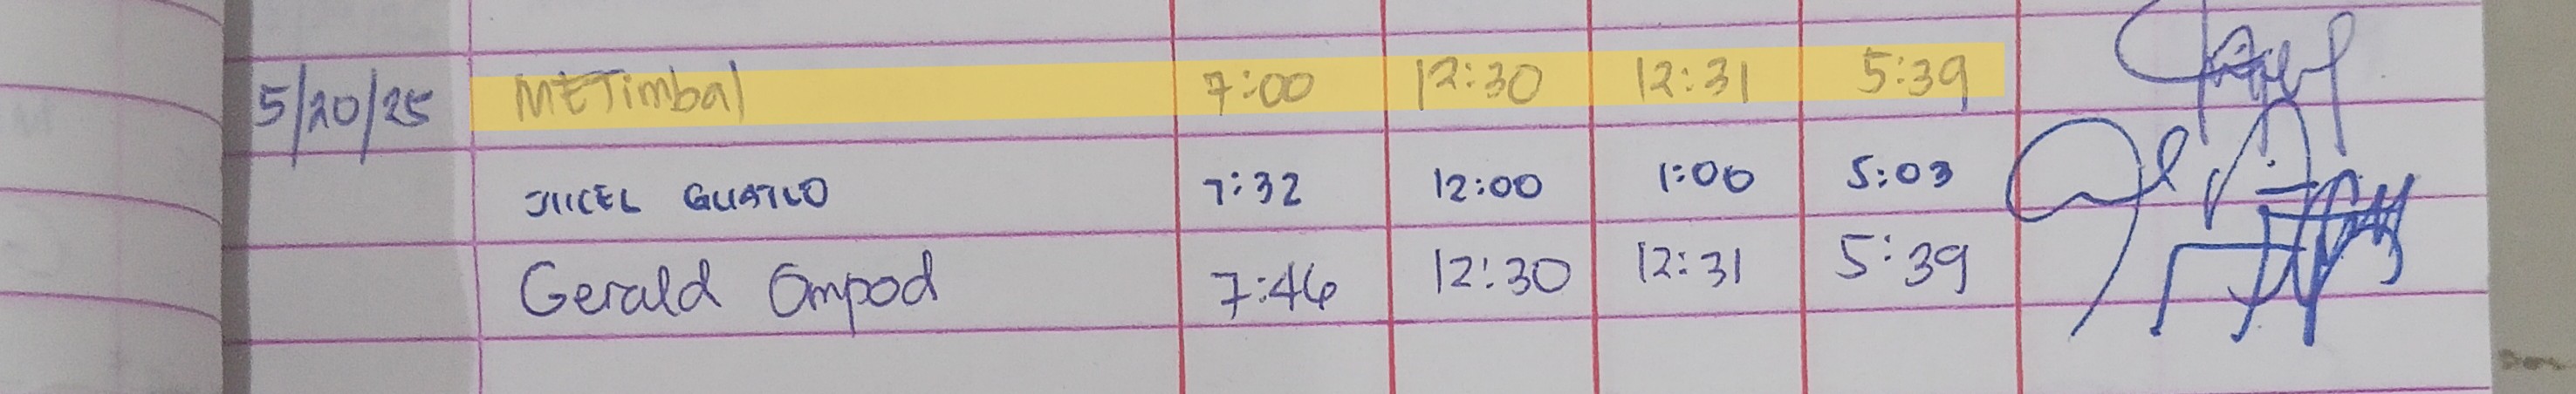 5/20/25 METimbal 7:00 12:30 12:31 5:39
JIICEL GUATLO 7:32 12:00 1:00 5:03
Gerald Ompod 7:46 12:30 12:31 5:39